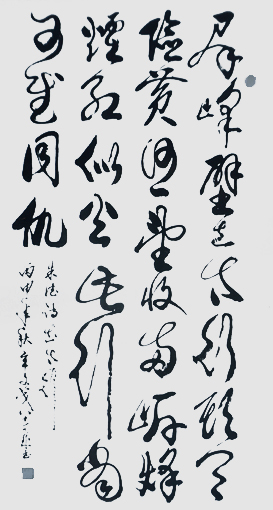 群峰壁立太行头天
險黄河一望收两岸烽
煙红似火此行当
可慰同仇
朱德詩出太行
丙申年秋